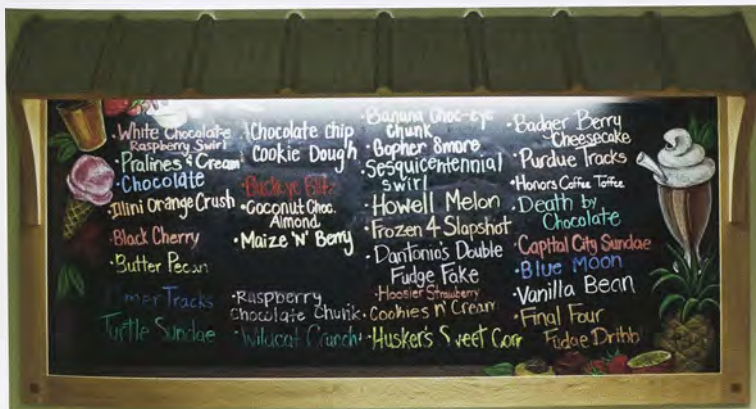 · White Chocolate
Raspberry Swirl
· Pralines & Cream
· Chocolate
· Illini Orange Crush
· Black Cherry
· Butter Pecan
Tracks
Turtle Sundae
· Chocolate chip
Cookie Dough
· Buckeye Blitz
· Coconut Choc.
Almond
· Maize 'N' Berry
· Raspberry
Chocolate Chunk
· Wildcat Crunch
· Banana Choc-eye
chunk
· Gopher Smore
· Sesquicentennial
swirl
· Howell Melon
· Frozen 4 Slapshot
· Dantonio's Double
Fudge Fake
· Hoosier Strawberry
· Cookies n' Cream
· Husker's Sweet Corn
· Badger Berry
Cheesecake
· Purdue Tracks
· Honors Coffee Toffee
· Death by
Chocolate
· Capital City Sundae
· Blue Moon
· Vanilla Bean
· Final Four
Fudge Dribb